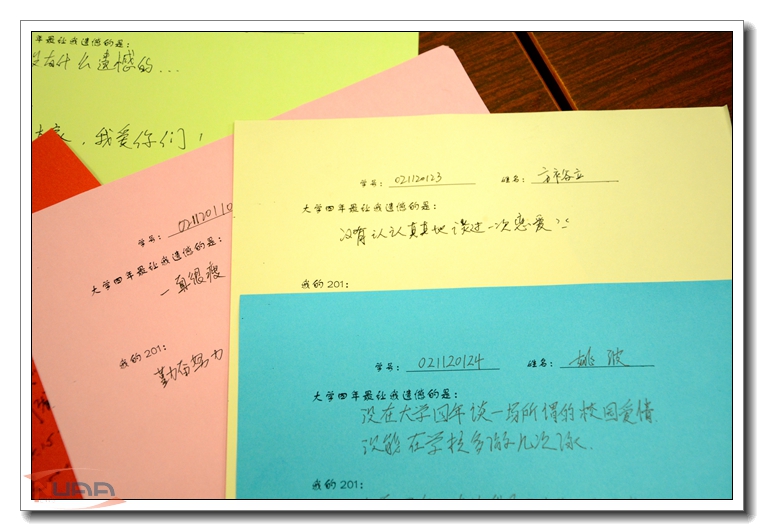 年最让我遗憾的是:
没有什么遗憾的...
大家,我爱你们!
学号: 02112011
大学四年最让我遗憾的是:
一直很瘦
我的201:
勤奋努力
学号: 021120123 姓名:
大学四年最让我遗憾的是:
没有认认真真地谈过一次恋爱
我的201:
学号: 021120124 姓名: 姚波
大学四年最让我遗憾的是:
没在大学四年谈一场所谓的校园爱情
没能在学校多游几次泳
我的201:
UAA